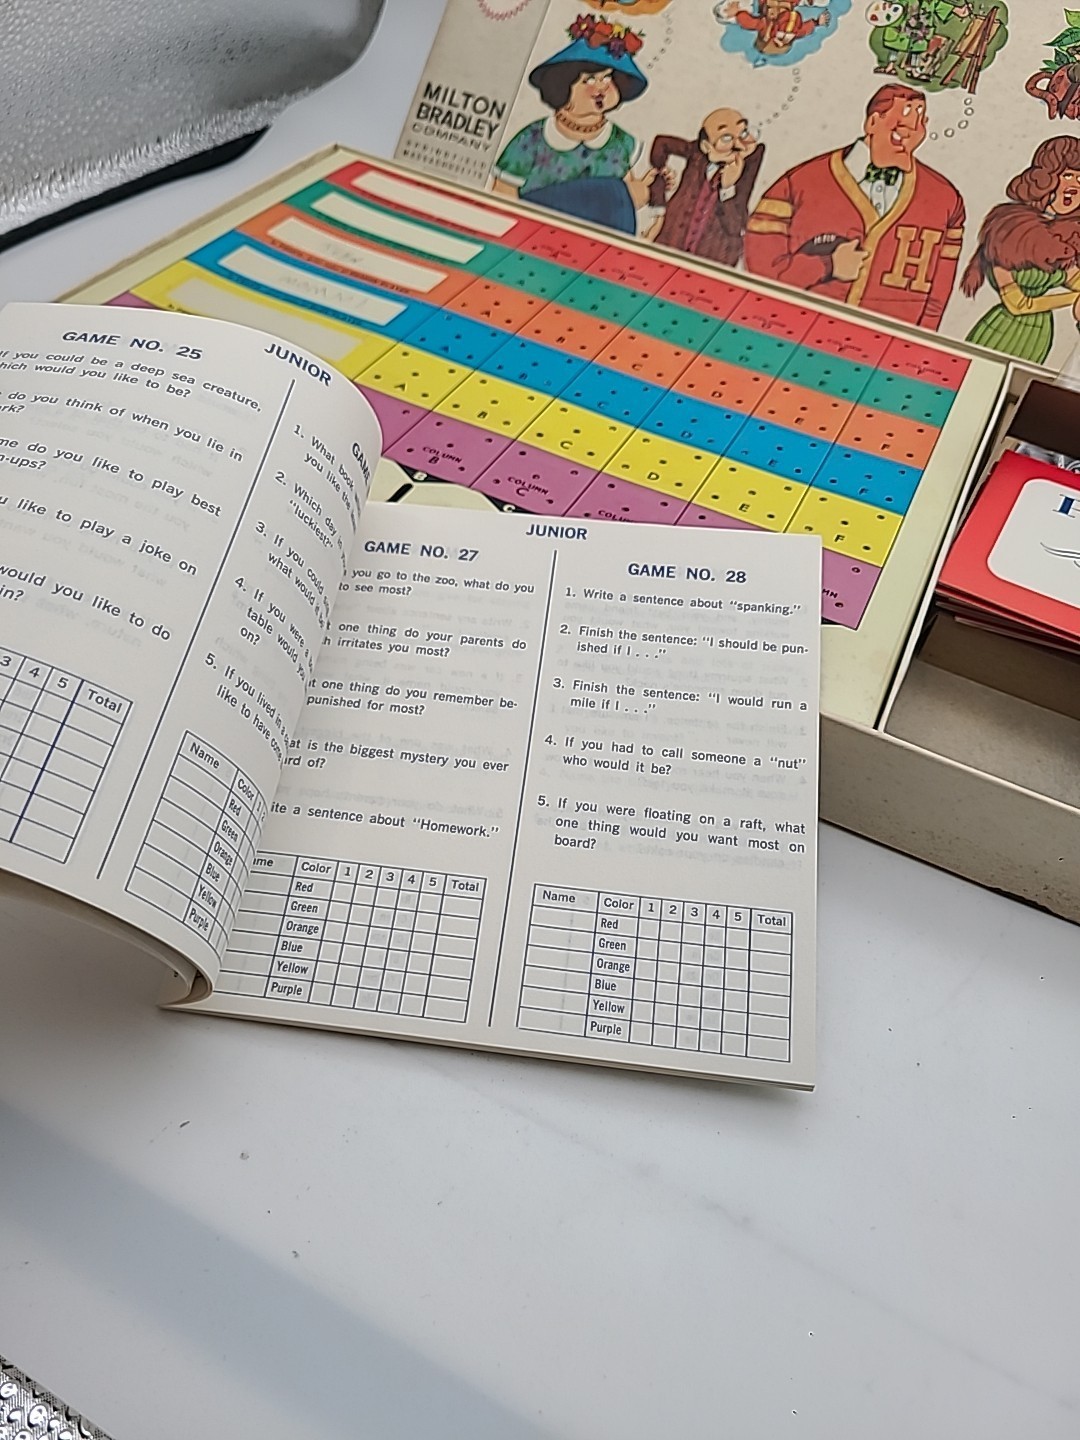 MILTON
BRADLEY
COMPANY
SPRINGFIELD
MASSACHUSETTS
H
A B C D E F
A B C D E F
A B C D E F
A B C D E F
COLUMN
B
COLUMN
C
GAME NO. 25
If you could be a deep sea creature,
which would you like to be?
do you think of when you lie in
do you like to play best
like to play a joke on
would you like to do
in?
3 4 5 Total
JUNIOR
1. What book
you like
2. Which day
"luckiest?"
3. If you could
what would
4. If you were a
table would you
on?
5. If you lived in a
like to have
Name Color 1
Red
Green
Orange
Blue
Yellow
Purple
JUNIOR
GAME NO. 27
you go to the zoo, what do you
to see most?
one thing do your parents do
irritates you most?
one thing do you remember be-
punished for most?
is the biggest mystery you ever
of?
a sentence about "Homework."
Color 1 2 3 4 5 Total
Red
Green
Orange
Blue
Yellow
Purple
GAME NO. 28
1. Write a sentence about "spanking."
2. Finish the sentence: "I should be pun-
ished if I . . ."
3. Finish the sentence: "I would run a
mile if I . . ."
4. If you had to call someone a "nut"
who would it be?
5. If you were floating on a raft, what
one thing would you want most on
board?
Name Color 1 2 3 4 5 Total
Red
Green
Orange
Blue
Yellow
Purple